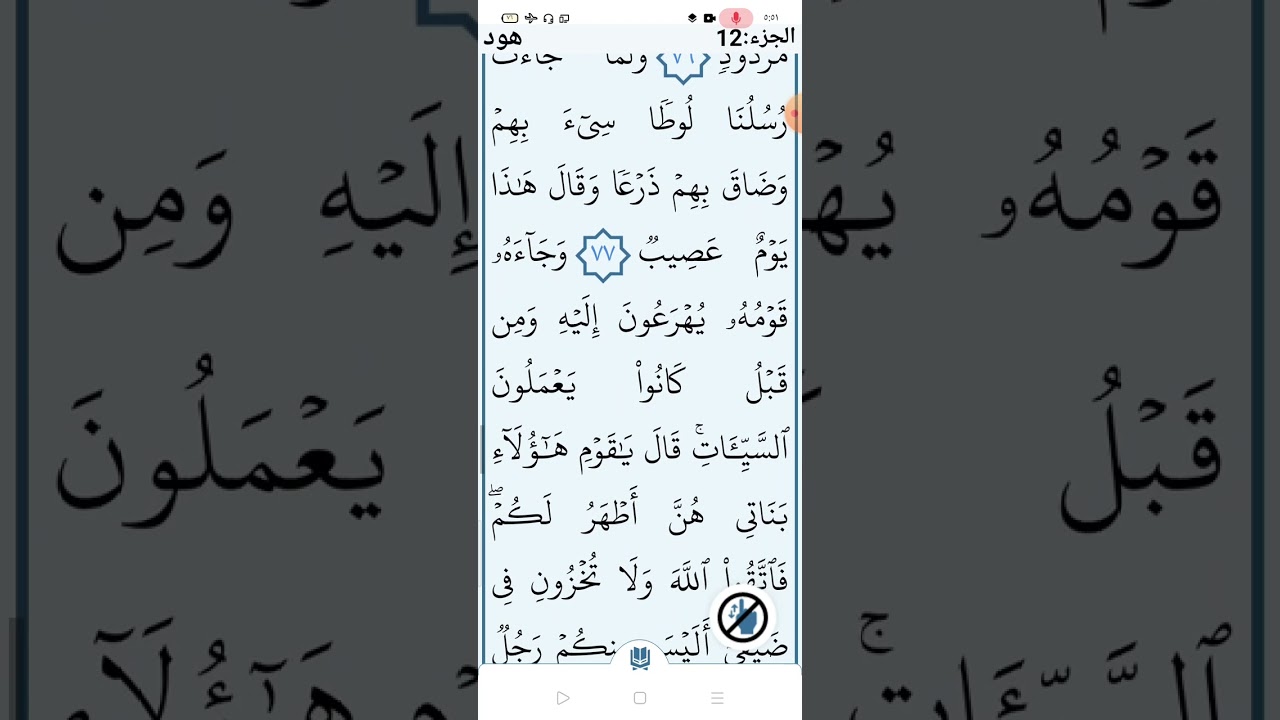 ٥:٥١
٧٩
الجزء:12
هود
مَرْدُودٍ ٧٦ وَلَمَّا جَآءَتْ
رُسُلُنَا لُوطًا سِيٓءَ بِهِمْ
وَضَاقَ بِهِمْ ذَرْعًا وَقَالَ هَٰذَا
يَوْمٌ عَصِيبٌ ٧٧ وَجَآءَهُۥ
قَوْمُهُۥ يُهْرَعُونَ إِلَيْهِ وَمِن
قَبْلُ كَانُوا۟ يَعْمَلُونَ
ٱلسَّيِّـَٔاتِ ۚ قَالَ يَٰقَوْمِ هَٰٓؤُلَآءِ
بَنَاتِى هُنَّ أَطْهَرُ لَكُمْ ۖ
فَٱتَّقُوا۟ ٱللَّهَ وَلَا تُخْزُونِ فِى
ضَيْفِىٓ أَلَيْسَ مِنكُمْ رَجُلٌ